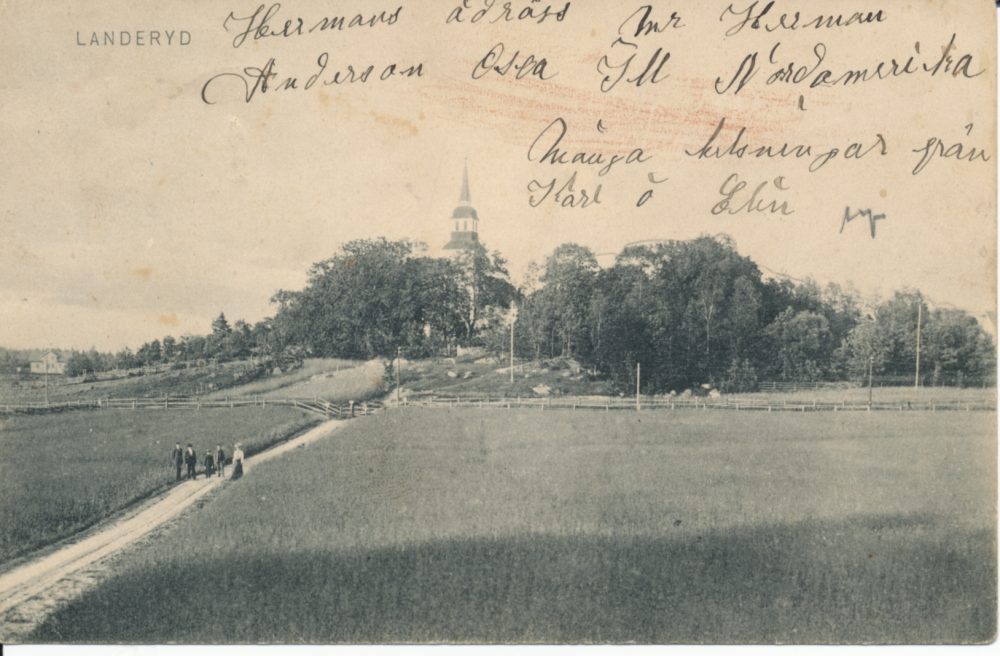 LANDERYD
Hermans ådräss Mr Herman
Anderson Osca Ill Nordamerika
Många helsningar från
Karl ö Elin